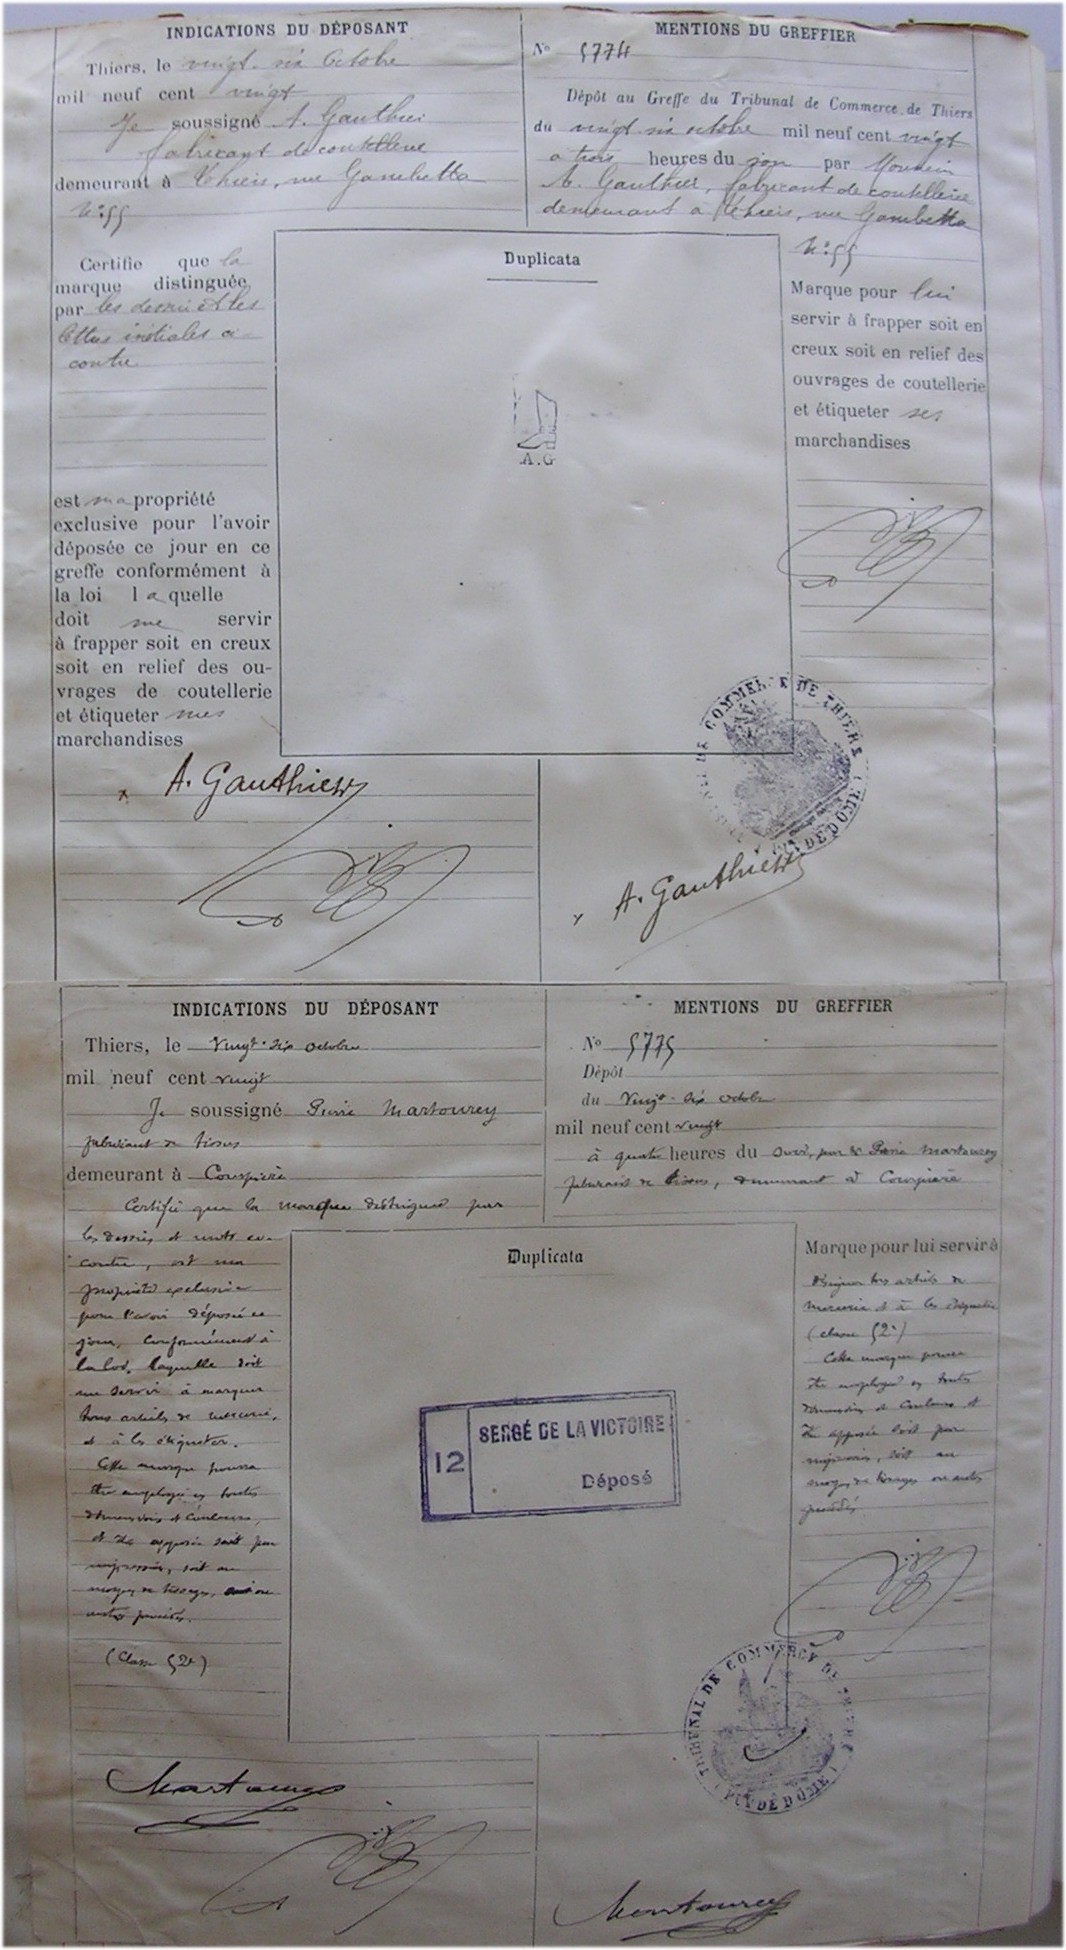 INDICATIONS DU DÉPOSANT
Thiers, le vingt-six Octobre
mil neuf cent vingt
Je soussigné A. Gauthier
fabricant de coutellerie
demeurant à Thiers, rue Gambetta
N° 55
MENTIONS DU GREFFIER
N° 5774
Dépôt au Greffe du Tribunal de Commerce de Thiers
du vingt-six octobre mil neuf cent vingt
à trois heures du soir par Monsieur
A. Gauthier, fabricant de coutellerie
demeurant à Thiers, rue Gambetta
N° 55
Certifie que la
marque distinguée
par les dessin et les
lettres initiales ci-
contre
est ma propriété
exclusive pour l'avoir
déposée ce jour en ce
greffe conformément à
la loi laquelle
doit me servir
à frapper soit en creux
soit en relief des ou-
vrages de coutellerie
et étiqueter mes
marchandises
Duplicata
A.G
Marque pour lui
servir à frapper soit en
creux soit en relief des
ouvrages de coutellerie
et étiqueter ses
marchandises
A. Gauthier
TRIBUNAL DE COMMERCE DE THIERS
PUY DE DOME
A. Gauthier
INDICATIONS DU DÉPOSANT
Thiers, le Vingt-six octobre
mil neuf cent vingt
Je soussigné Pierre Martourey
fabricant de tissus
demeurant à Courpière
Certifie que la marque distinguée par
les dessins et mots ci-
contre, est ma
propriété exclusive
pour l'avoir déposée ce
jour, conformément à
la loi, laquelle doit
me servir à marquer
tous articles de mercerie,
et à les étiqueter.
Cette marque pourra
être employée en toutes
dimensions et couleurs,
et être apposée soit par
impression, soit au
moyen de tissages, ou
autres procédés.
(Classe 52e)
MENTIONS DU GREFFIER
N° 5775
Dépôt
du Vingt-six octobre
mil neuf cent vingt
à quatre heures du soir, par Mr Pierre Martourey
fabricant de tissus, demeurant à Courpière
Duplicata
12
SERGÉ DE LA VICTOIRE
Déposé
Marque pour lui servir à
désigner tous articles de
mercerie et à les étiqueter
(classe 52e)
Cette marque pourra
être employée en toutes
dimensions et couleurs et
être apposée soit par
impression, soit au
moyen de tissages ou autres
procédés
Martourey
TRIBUNAL DE COMMERCE DE THIERS
PUY DE DOME
Martourey